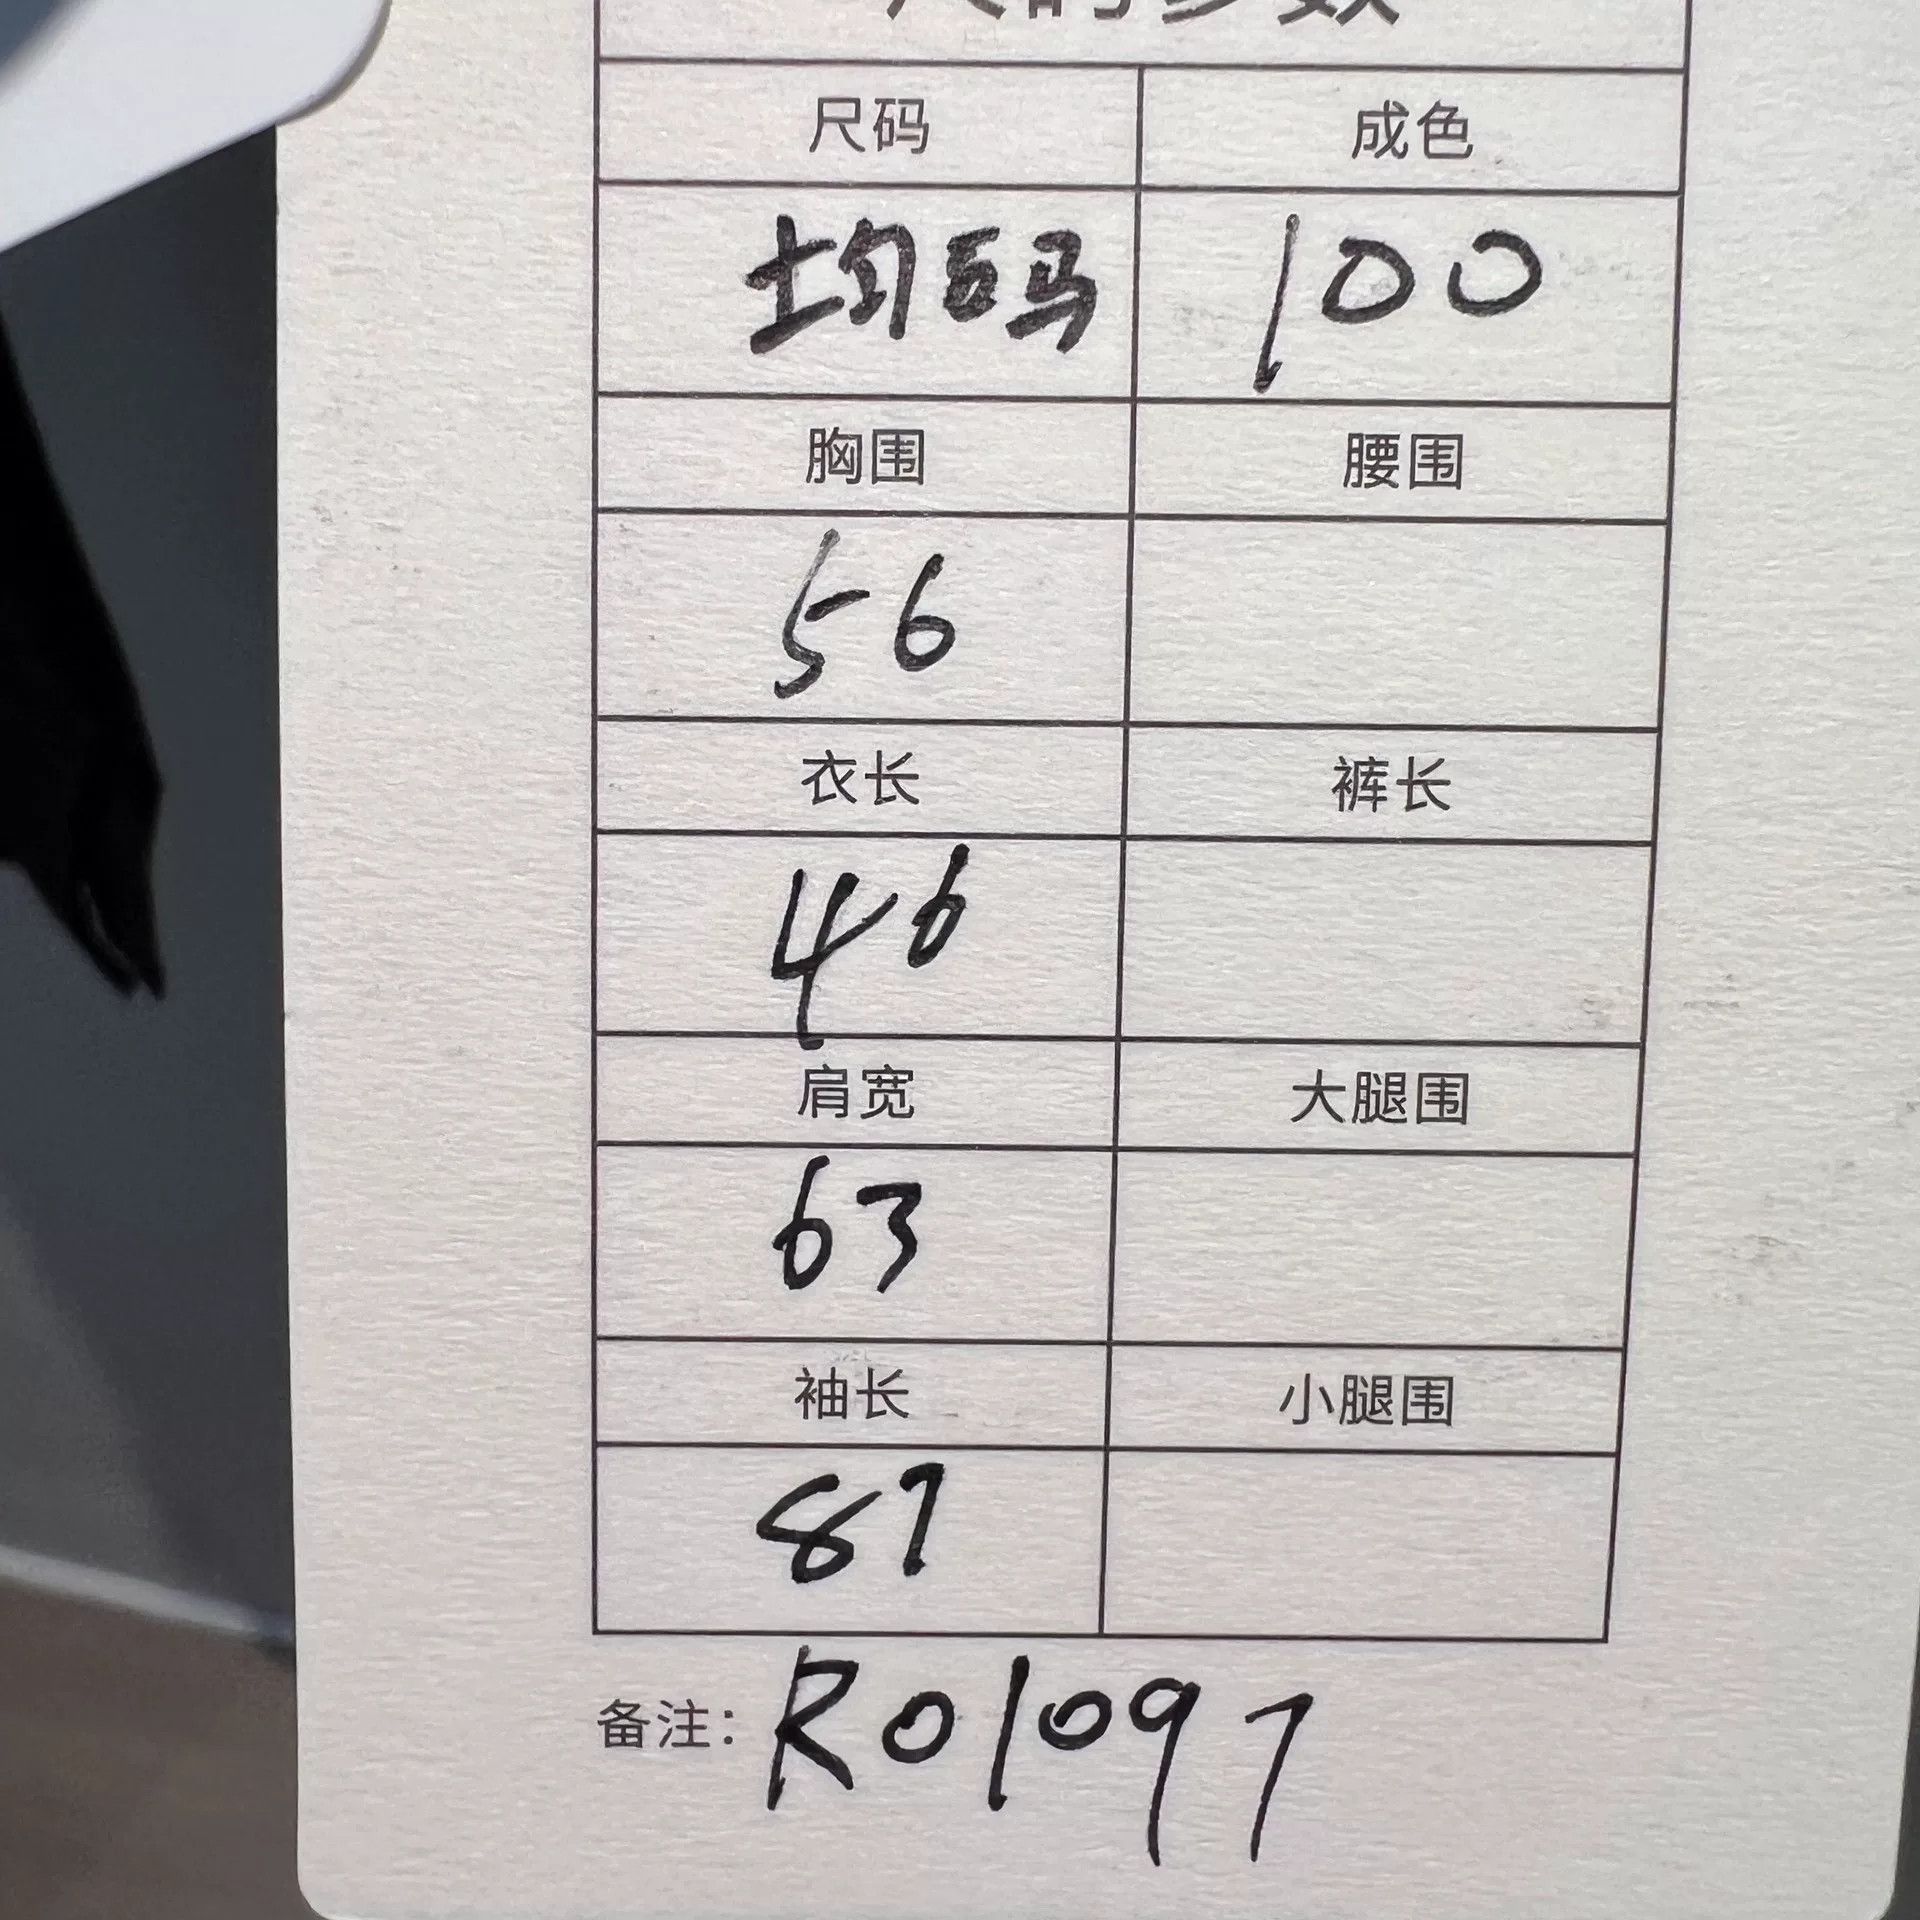 尺码参数
尺码 成色
均码 100
胸围 腰围
56
衣长 裤长
46
肩宽 大腿围
63
袖长 小腿围
87
备注: R01097